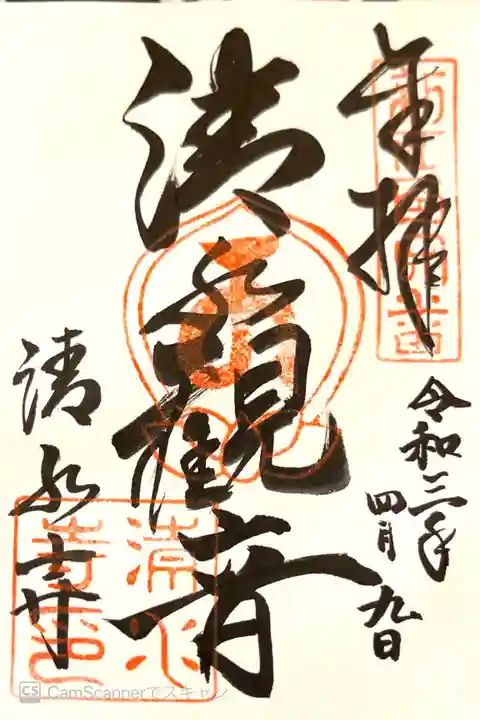 奉拝
令和三年
四月九日
清水観音
清水寺
CamScannerでスキャン